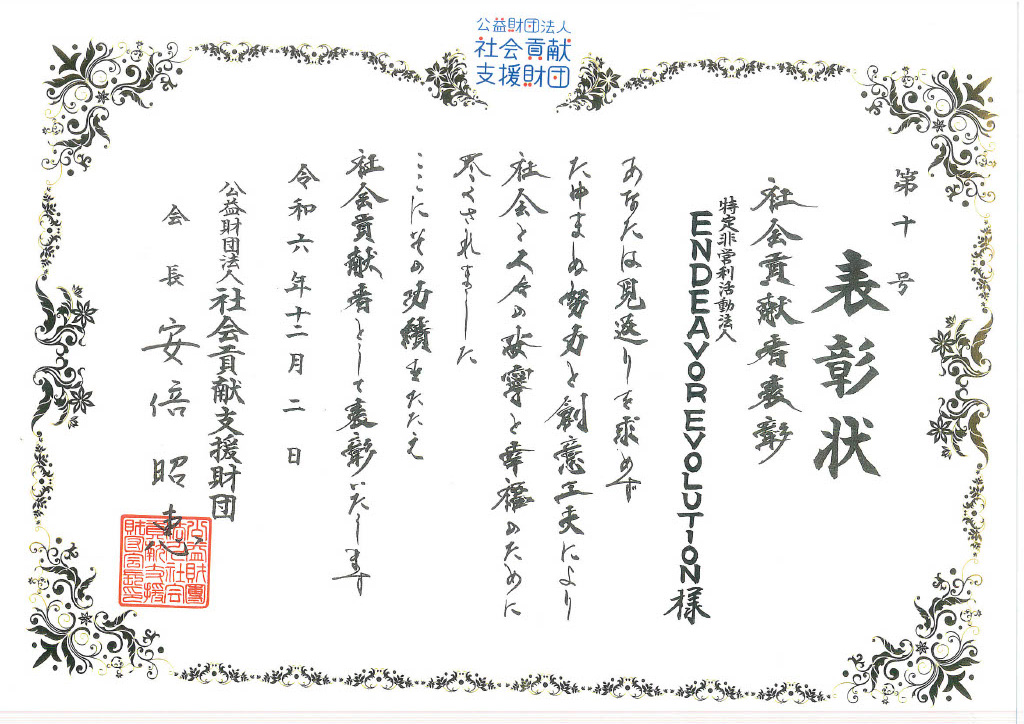 公益財団法人
社会貢献
支援財団
表彰状
第十号
社会貢献者表彰
特定非営利活動法人
ENDEAVOR EVOLUTION 様
あなたは見返りを求めず
たゆまぬ努力と創意工夫により
社会と人々の安寧と幸福のために
尽くされました
ここにその功績をたたえ
社会貢献者として表彰いたします
令和六年十二月二日
公益財団法人 社会貢献支援財団
会長 安倍昭恵